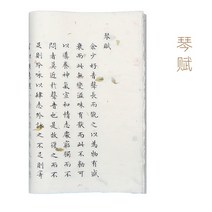 琴赋
琴賦
余少好音聲長而翫之以為物有盛
衰而此無變滋味有猒而此不勌可
以導養神氣宣和情志處窮獨而不
悶者莫近於音聲也是故復之而不
足則吟詠以肆志吟詠之不足則寄